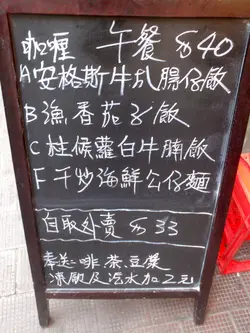 咖喱 午餐 $40
A安格斯牛扒腸仔飯
B魚香茄子飯
C柱侯蘿白牛腩飯
F干炒海鮮公仔麵
自取外賣 $33
奉送:啡.茶.豆漿
凍飲及汽水加2元